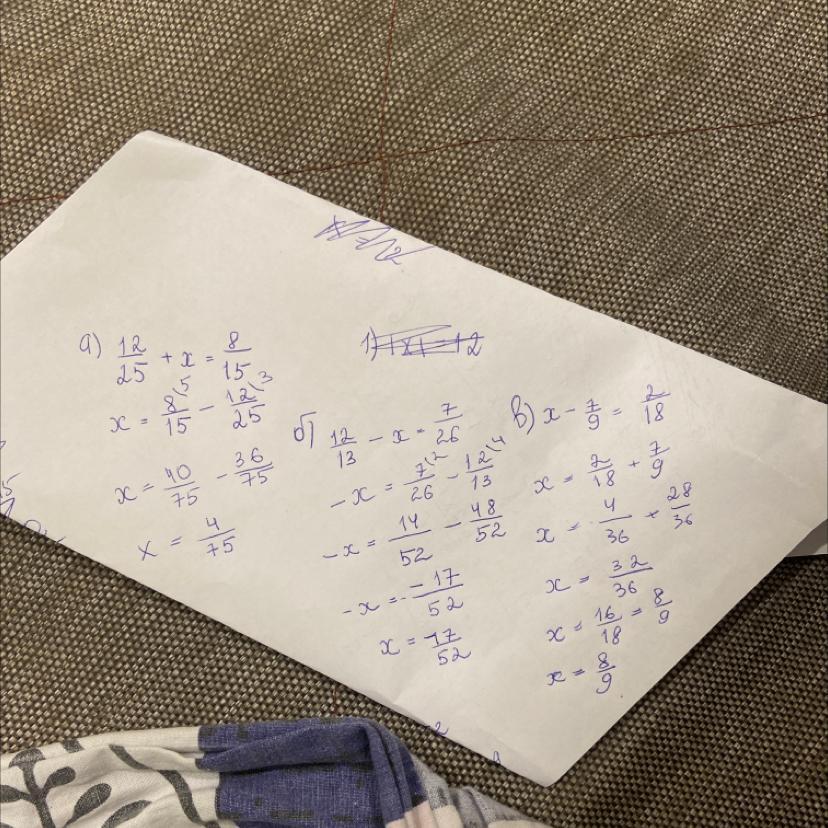 а) 12/25 + x = 8/15
x = 8\5/15 - 12\3/25
x = 40/75 - 36/75
x = 4/75
1)
б) 12/13 - x = 7/26
-x = 7\2/26 - 12\4/13
-x = 14/52 - 48/52
-x = -17/52
x = 17/52
в) x - 7/9 = 2/18
x = 2/18 + 7/9
x = 4/36 + 28/36
x = 32/36
x = 16/18 = 8/9
x = 8/9